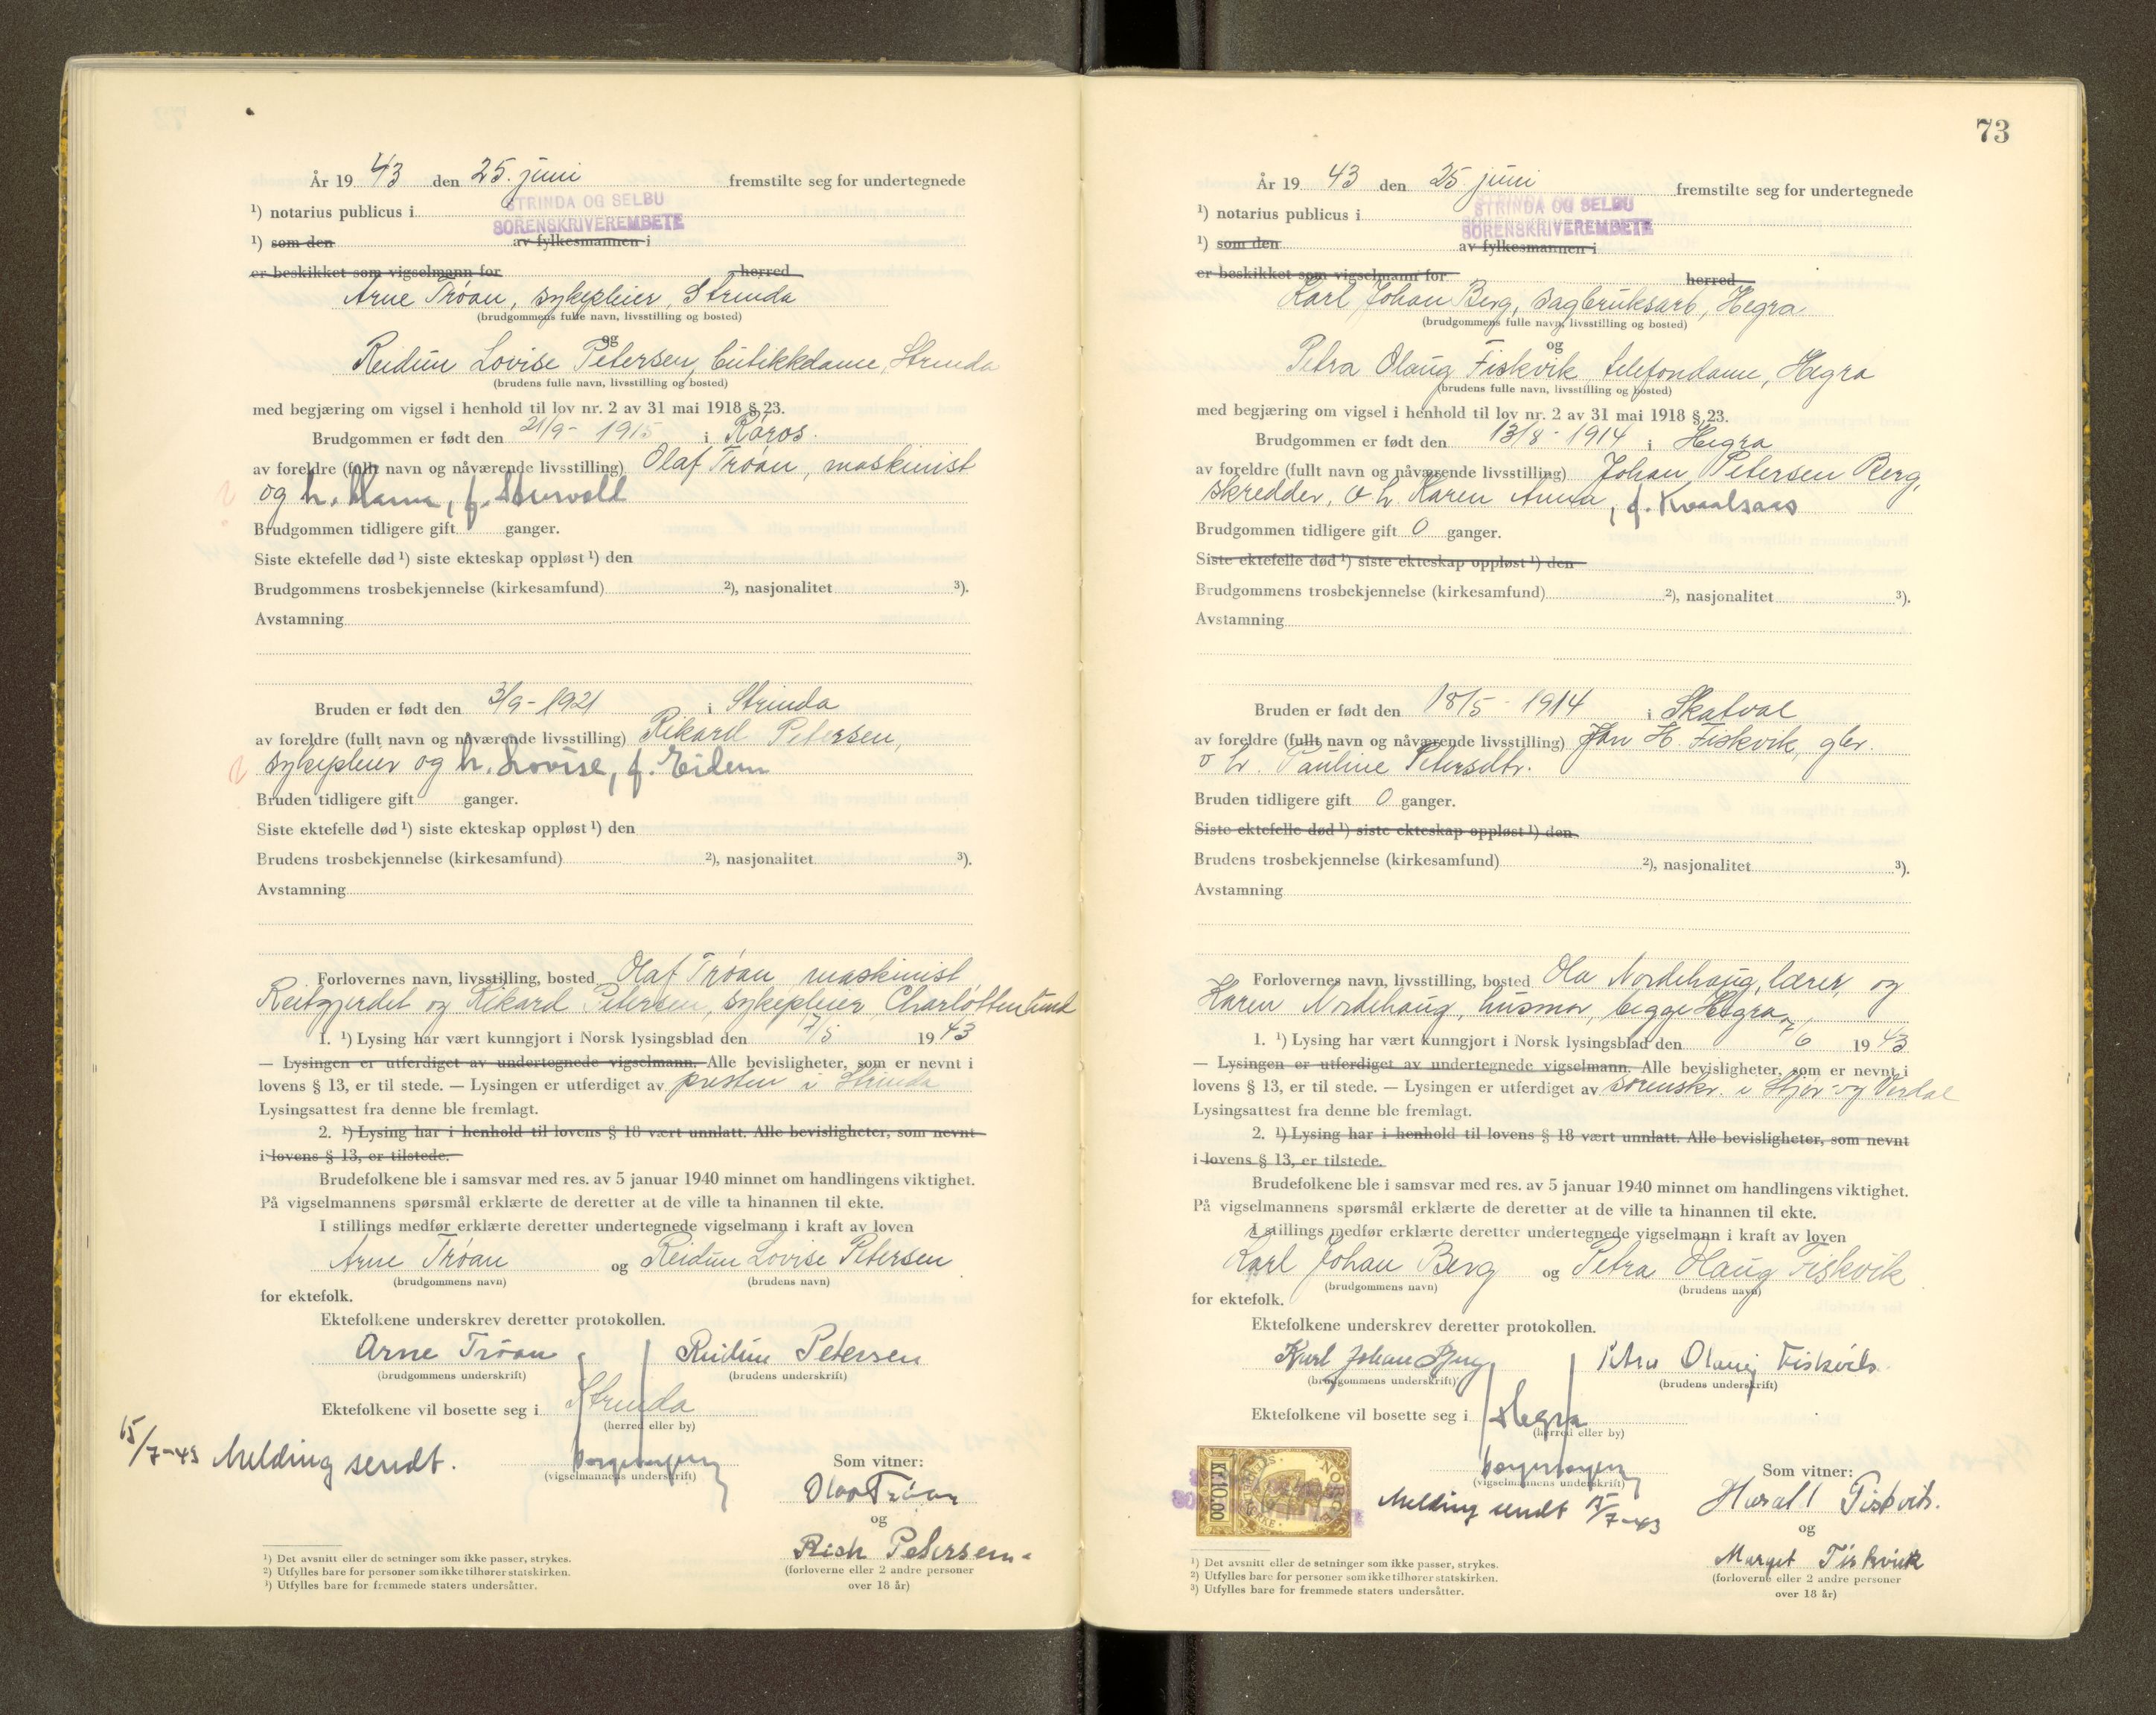 År 19 43 den 25. juni fremstilte seg for undertegnede
¹) notarius publicus i STRINDA OG SELBU
SORENSKRIVEREMBETE
¹) som den av fylkesmannen i
er beskikket som vigselmann for herred
Arne Trøan, sykepleier, Strinda
(brudgommens fulle navn, livsstilling og bosted)
og
Reidun Lovise Petersen, butikkdame, Strinda
(brudens fulle navn, livsstilling og bosted)
med begjæring om vigsel i henhold til lov nr. 2 av 31 mai 1918 § 23.
Brudgommen er født den 21/9 - 1915 i Røros.
av foreldre (fullt navn og nåværende livsstilling) Olaf Trøan, maskinist
og h. f.
Brudgommen tidligere gift ganger.
Siste ektefelle død ¹) siste ekteskap oppløst ¹) den
Brudgommens trosbekjennelse (kirkesamfund) ²), nasjonalitet ³).
Avstamning
Bruden er født den 3/9 - 1921 i Strinda
av foreldre (fullt navn og nåværende livsstilling) Rikard Petersen,
sykepleier og h. Lovise, f. Eidem
Bruden tidligere gift ganger.
Siste ektefelle død ¹) siste ekteskap oppløst ¹) den
Brudens trosbekjennelse (kirkesamfund) ²), nasjonalitet ³).
Avstamning
Forlovernes navn, livsstilling, bosted Olaf Trøan, maskinist
Reitgjerdet og Rikard Petersen, sykepleier, Charlottenlund
1. ¹) Lysing har vært kunngjort i Norsk lysingsblad den 7/5 19 43
— Lysingen er utferdiget av undertegnede vigselmann. Alle bevisligheter, som er nevnt i
lovens § 13, er til stede. — Lysingen er utferdiget av presten i Strinda
Lysingsattest fra denne ble fremlagt.
2. ¹) Lysing har i henhold til lovens § 18 vært unnlatt. Alle bevisligheter, som nevnt
i lovens § 13, er tilstede.
Brudefolkene ble i samsvar med res. av 5 januar 1940 minnet om handlingens viktighet.
På vigselmannens spørsmål erklærte de deretter at de ville ta hinannen til ekte.
I stillings medfør erklærte deretter undertegnede vigselmann i kraft av loven
Arne Trøan og Reidun Lovise Petersen
(brudgommens navn) (brudens navn)
for ektefolk.
Ektefolkene underskrev deretter protokollen.
Arne Trøan Reidun Petersen
(brudgommens underskrift) (brudens underskrift)
Ektefolkene vil bosette seg i Strinda
(herred eller by)
15/7-43 Melding sendt.
(vigselmannens underskrift)
Som vitner:
Olaf Trøan
og
Rich Petersen
(forloverne eller 2 andre personer
over 18 år)
¹) Det avsnitt eller de setninger som ikke passer, strykes.
²) Utfylles bare for personer som ikke tilhører statskirken.
³) Utfylles bare for fremmede staters undersåtter.
73
År 19 43 den 25 juni fremstilte seg for undertegnede
¹) notarius publicus i STRINDA OG SELBU
SORENSKRIVEREMBETE
¹) som den av fylkesmannen i
er beskikket som vigselmann for herred
Karl Johan Berg, sagbruksarb, Hegra
(brudgommens fulle navn, livsstilling og bosted)
og
Petra Olaug Fiskvik telefondame, Hegra
(brudens fulle navn, livsstilling og bosted)
med begjæring om vigsel i henhold til lov nr. 2 av 31 mai 1918 § 23.
Brudgommen er født den 13/8 - 1914 i Hegra
av foreldre (fullt navn og nåværende livsstilling) Johan Petersen Berg,
skredder, o h. Karen Anna, f. Kvaalsaas
Brudgommen tidligere gift 0 ganger.
Siste ektefelle død ¹) siste ekteskap oppløst ¹) den
Brudgommens trosbekjennelse (kirkesamfund) ²), nasjonalitet ³).
Avstamning
Bruden er født den 18/5 - 1914 i Skatval
av foreldre (fullt navn og nåværende livsstilling) Jon H. Fiskvik, gbr.
o h. Pauline Petersdtr.
Bruden tidligere gift 0 ganger.
Siste ektefelle død ¹) siste ekteskap oppløst ¹) den
Brudens trosbekjennelse (kirkesamfund) ²), nasjonalitet ³).
Avstamning
Forlovernes navn, livsstilling, bosted Ola Nordehaug, lærer, og
Karen Nordehaug, husmor, begge Hegra
1. ¹) Lysing har vært kunngjort i Norsk lysingsblad den /6 19 43
— Lysingen er utferdiget av undertegnede vigselmann. Alle bevisligheter, som er nevnt i
lovens § 13, er til stede. — Lysingen er utferdiget av sorenskr. i Stjør- og Verdal
Lysingsattest fra denne ble fremlagt.
2. ¹) Lysing har i henhold til lovens § 18 vært unnlatt. Alle bevisligheter, som nevnt
i lovens § 13, er tilstede.
Brudefolkene ble i samsvar med res. av 5 januar 1940 minnet om handlingens viktighet.
På vigselmannens spørsmål erklærte de deretter at de ville ta hinannen til ekte.
I stillings medfør erklærte deretter undertegnede vigselmann i kraft av loven
Karl Johan Berg og Petra Olaug Fiskvik
(brudgommens navn) (brudens navn)
for ektefolk.
Ektefolkene underskrev deretter protokollen.
Karl Johan Berg Petra Olaug Fiskvik.
(brudgommens underskrift) (brudens underskrift)
Ektefolkene vil bosette seg i Hegra
(herred eller by)
(vigselmannens underskrift)
KR 10.00
NORGE
Melding sendt 15/7-43
Som vitner:
Harall Fiskvik.
og
Marget Fiskvik
(forloverne eller 2 andre personer
over 18 år)
¹) Det avsnitt eller de setninger som ikke passer, strykes.
²) Utfylles bare for personer som ikke tilhører statskirken.
³) Utfylles bare for fremmede staters undersåtter.